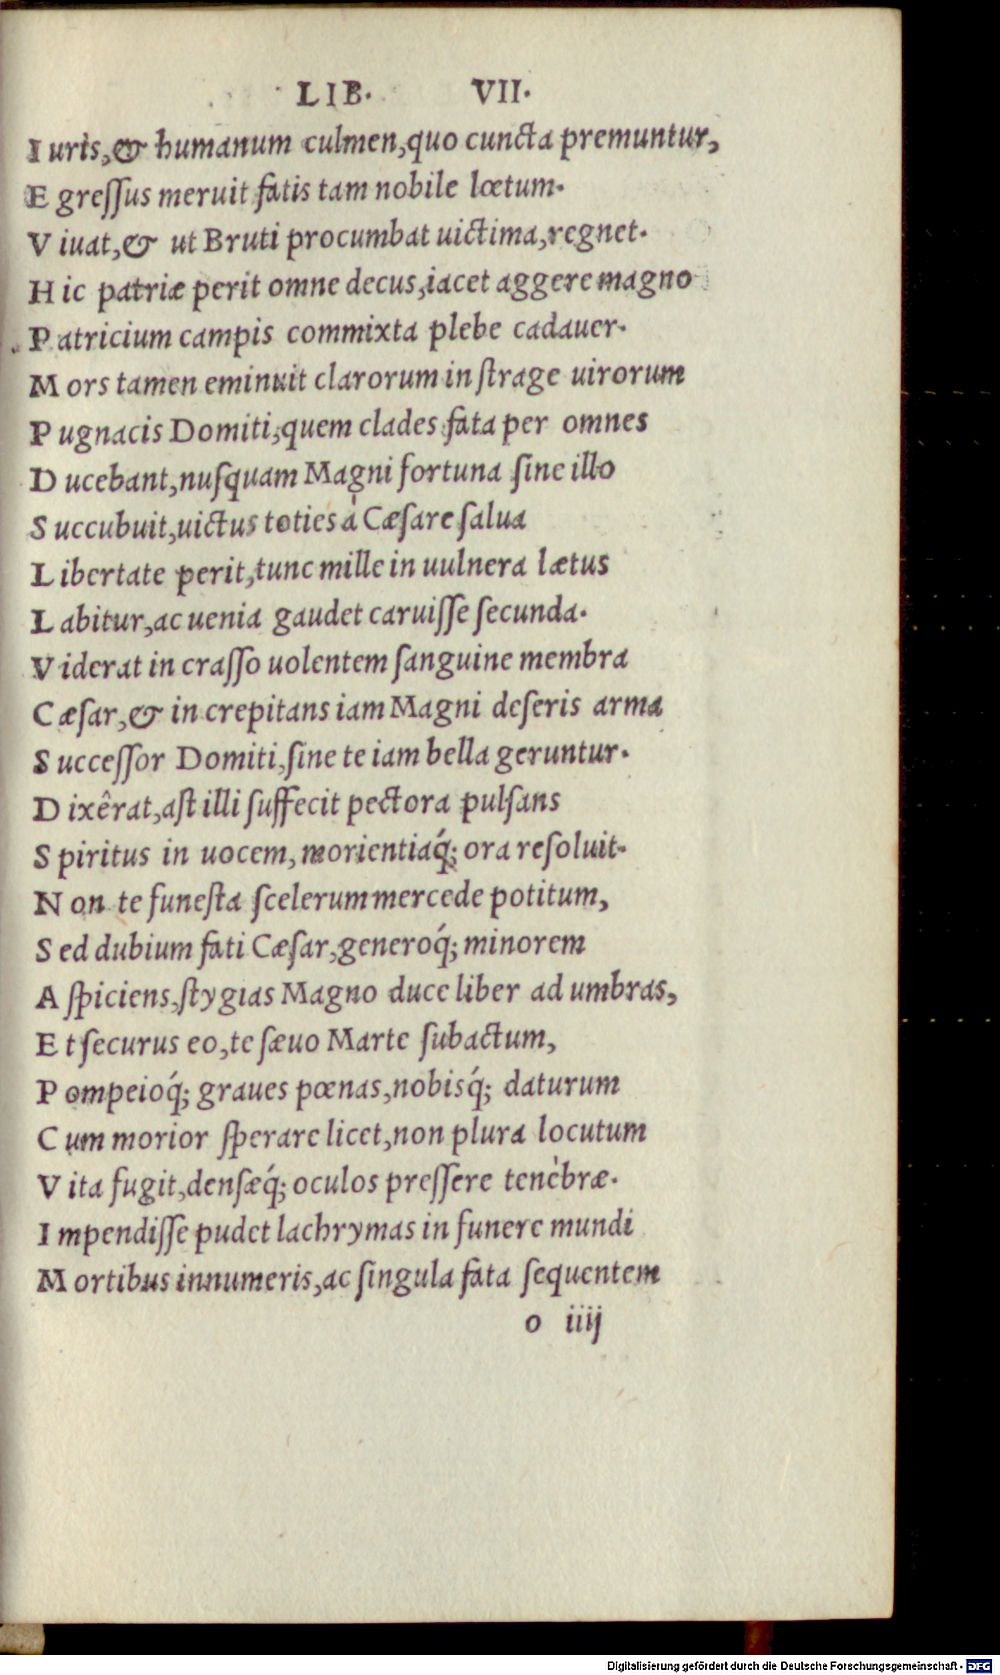 LIB. VII.
I uris,& humanum culmen,quo cuncta premuntur,
E greſſus meruit fatis tam nobile lœtum.
V iuat,& ut Bruti procumbat uictima,regnet.
H ic patriæ perit omne decus,iacet aggere magno
P atricium campis commixta plebe cadauer.
M ors tamen eminuit clarorum in ſtrage uirorum
P ugnacis Domiti,quem clades fata per omnes
D ucebant,nuſquam Magni fortuna ſine illo
S uccubuit,uictus toties à Cæſare ſalua
L ibertate perit,tunc mille in uulnera lætus
L abitur,ac uenia gaudet caruiſſe ſecunda.
V iderat in craſſo uolentem ſanguine membra
C æſar,& in crepitans iam Magni deſeris arma
S ucceſſor Domiti,ſine te iam bella geruntur.
D ixêrat,aſt illi ſuffecit pectora pulſans
S piritus in uocem,morientiaq́; ora reſoluit.
N on te funeſta ſcelerum mercede potitum,
S ed dubium fati Cæſar,generoq́; minorem
A ſpiciens,ſtygias Magno duce liber ad umbras,
E t ſecurus eo,te ſæuo Marte ſubactum,
P ompeioq́; graues pœnas,nobisq́; daturum
C um morior ſperare licet,non plura locutum
V ita fugit,denſæq́; oculos preſſere tenèbræ.
I mpendiſſe pudet lachrymas in funere mundi
M ortibus innumeris,ac ſingula fata ſequentem
o iiij
Digitalisierung gefördert durch die Deutsche Forschungsgemeinschaft - DFG